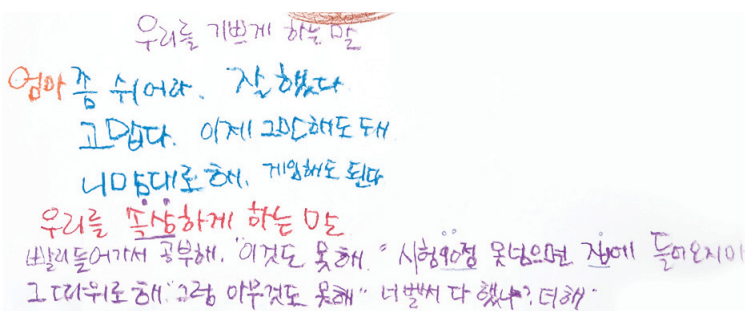 우리를 기쁘게 하는 말
엄마 좀 쉬어라. 잘 했다
고맙다. 이제 그만해도 돼
니 맘대로 해. 게임해도 된다
우리를 속상하게 하는 말
빨리 들어가서 공부해. "이것도 못해." 시험90점 못넘으면 집에 들어오지마
그 따위로 해" 그럼 아무것도 못해" 너 벌써 다 했냐? 더해"